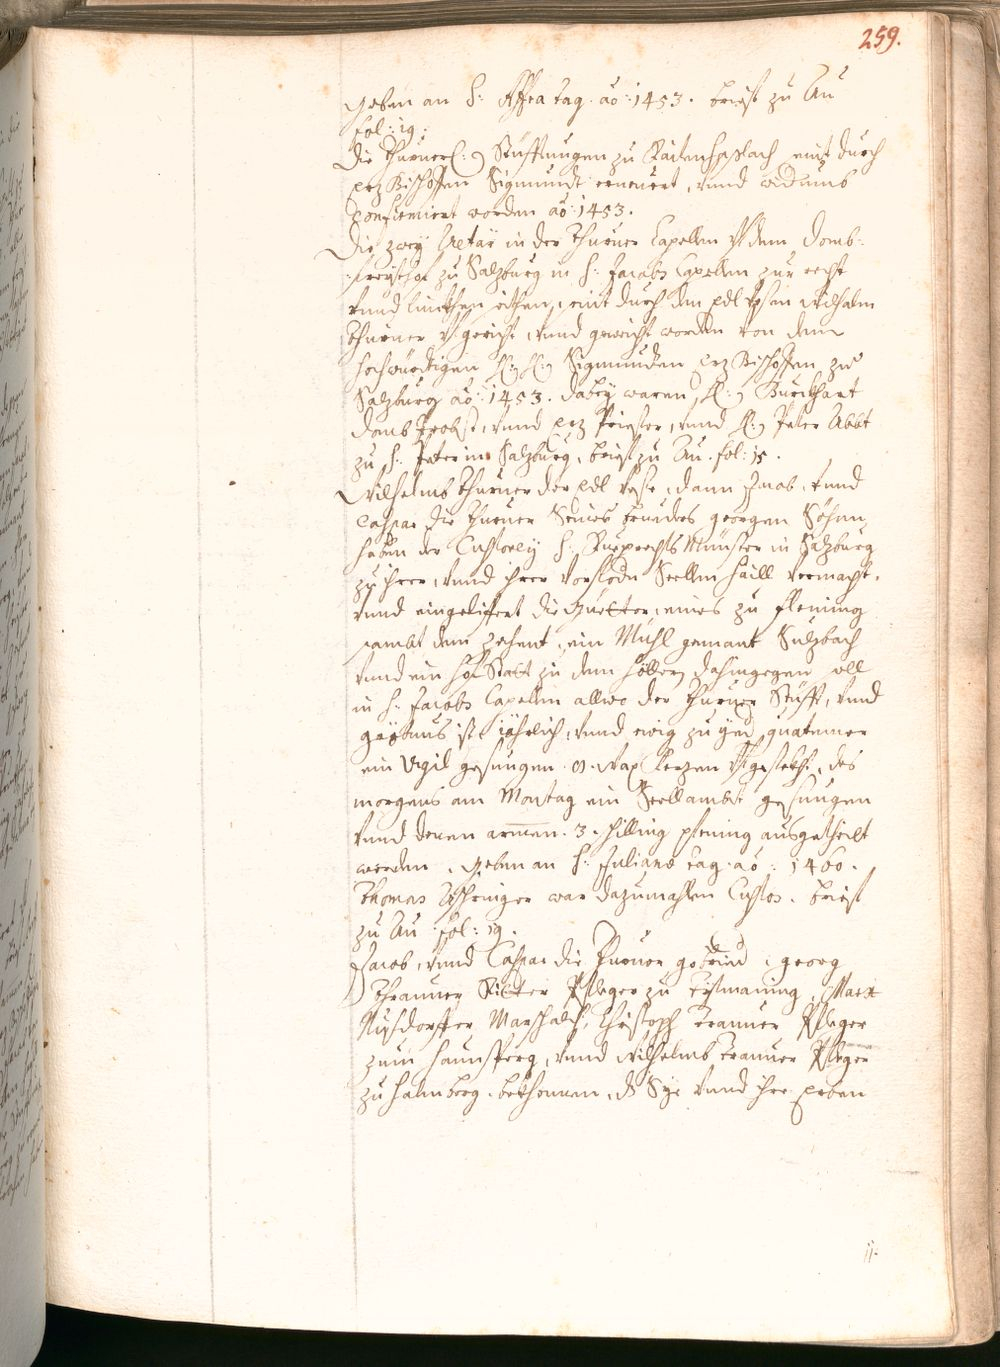 259.
Geben an S: Affra tag. ao: 1453. brieff zu Au
fol: 19:
Die Thurnerl: Stüfftungen zu Raitenhaslach seint durch
Erz Bischoffen Sigmundt erneuert, vnnd widumb
Confirmiert worden ao: 1453.
Die zwey Altär in der Thurner Capellen auf dem Domb:
freythof zu Salzburg in S: Jacobs Capellen zur recht
vnnd linckhen seithen, seint durch den Edl Vesten Wilhalm
Thurner aufgericht, vnnd geweicht worden von dem
hochwürdigen H: H: Sigmunden Erz Bischoffen zu
Salzburg ao: 1453. dabey waren, H: Burckhart
Domb Probst, vnnd Erz Priester, vnnd H: Peter Abbt
zu S: Peter in Salzburg, brieff zu Au. fol: 15.
Wilhelmb Thurner der Edl Vest, dann Jacob, vnnd
Caspar die Thurner Seines brueders Georgen Söhn
haben der Custorey S: Rueprechts Münster in Salzburg
zu ihrer, vnnd ihrer Vorfodern Seellen haill vermacht,
vnnd eingelifert die Güetter, eines zu Fleming
sambt dem zehent, ein Mühl genant Sulzbach
vnnd ein hof Statt zu dem Höller, dahingegen soll
in S: Jacobs Capellen allwo der Thurner Stüfft, vnnd
ist jährlich, vnnd ewig zu yed quatember
ein Vigil gesungen. 8. Wax Kerzen aufgestekht, des
morgens am Montag ein Seelambt gesungen
vnnd denen armen. 3. schilling pfening ausgetheilt
werden, Geben an S: Juliano tag. ao: 1460.
Thomas war dazumahlen Custos. brieff
zu Au fol: 19.
Jacob, vnnd Caspar die Turner gebried, Georg
Thraunner Ritter Pfleger zu Titmaning, Marx
Nusdorffer Marschalch, Christoph Trauner Pfleger
zum Haunsperg, vnnd Wilhelmb Trauner Pfleger
zu Halmberg, bekhennen, das Sye vnnd ihre Erben